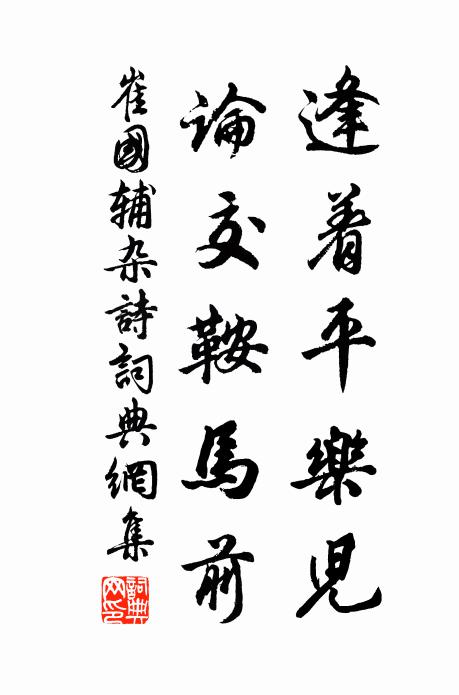 逢着平樂児
論交鞍馬前
崔國辅杂詩詞典網集
詞典网印